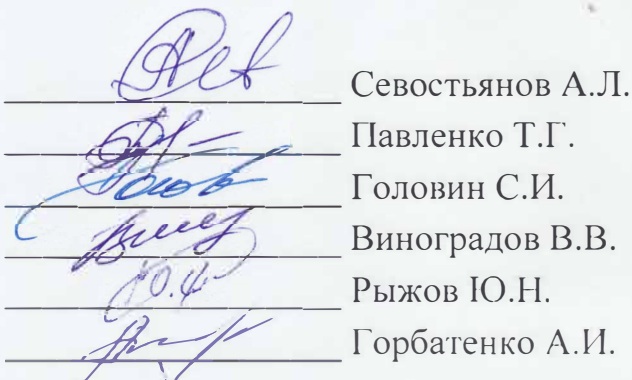 Севостьянов А.Л.
Павленко Т.Г.
Головин С.И.
Виноградов В.В.
Рыжов Ю.Н.
Горбатенко А.И.